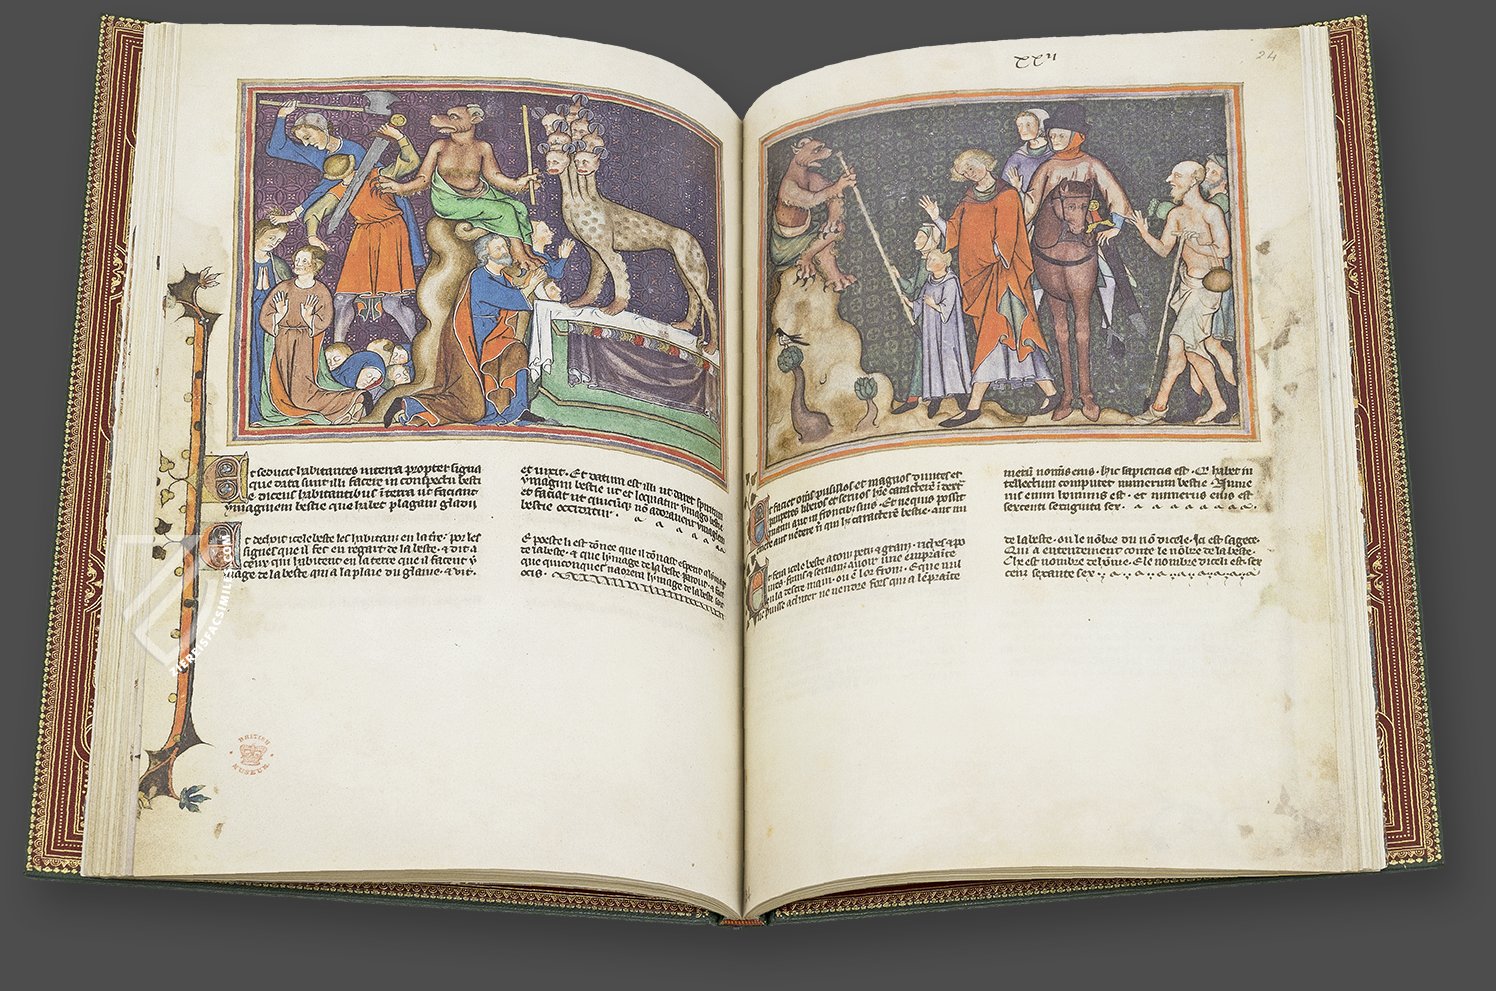 Et seducit habitantes in terra propter signa
que data sunt illi facere in conspectu besti
e dicens habitantibus i terra ut faciant
ymaginem bestie que habet plagam gladii
et vixit. Et datum est illi ut daret spiritum
ymagini bestie ut et loquatur ymago bestie
et faciat ut quicūqȝ nō adoraverit ymaginem
bestie occidatur.
Et deduit icele beste les habitans en la tre. por les
signes que il fet en regart de la beste. & dit a
ceuz qui habitent en la terre que il facent y
mage de la beste qui a la plaie du glaive. & vit.
E poeste li est donee que il donast esperit a lymage
de la beste. & que lymage de la beste parout. & face
que quiconques naorent lymage de la beste soit
ocis.
BRITISH
MUSEUM
ZIEREISFACSIMILES.COM
XXII
24
Et faciet oms pusillos et magnos divites et
pauperes liberos et servos hre caracterē ī dext
manu aut in frontibus suis. Et nequis possit
aut vendere nī qui hȝ caracterē bestie. aut nu
merū nominis eius. hic sapiencia est. Qi habet in
tellectum computet numerum bestie. Nume
rus enim hominis est. et numerus eius est
sexcenti sexaginta sex.
Et fera icele beste a touz petiz & granz. riches & po
vres. frans & serianz avoir une empraite
en la destre main. ou en lor fronz. E que nul
ne puisse achater ne vendre fors qui a lepraite
de la beste. ou le nōbre du nō dicele. Ici est sagece.
Qui a entendement conte le nōbre de la beste.
Cest nombre delome. E le nombre diceli est sex
cenz sexante sex